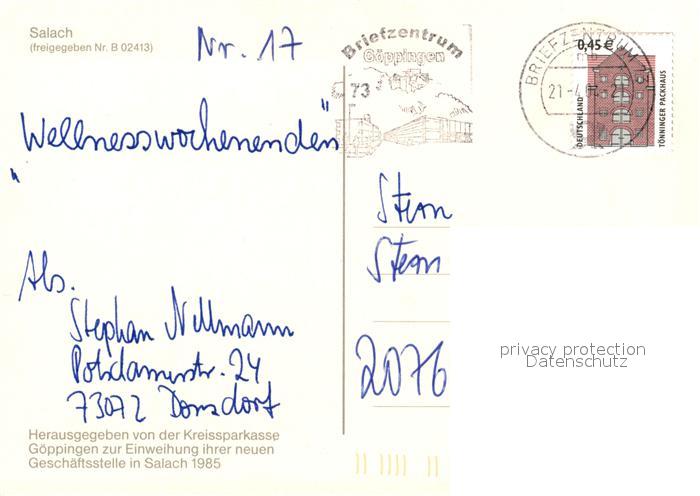 Salach
(freigegeben Nr. B 02413)
Nr. 17
Briefzentrum
Göppingen
73
BRIEFZENTRUM 7
mb
21.-4.0
0,45 €
DEUTSCHLAND
TÖNNINGER PACKHAUS
„Wellnesswochenenden"
Stern
Stern
Abs.
Stephan Nillmann
Potsdamerstr. 24
73072 Donzdorf
2076
privacy protection
Datenschutz
Herausgegeben von der Kreissparkasse
Göppingen zur Einweihung ihrer neuen
Geschäftsstelle in Salach 1985